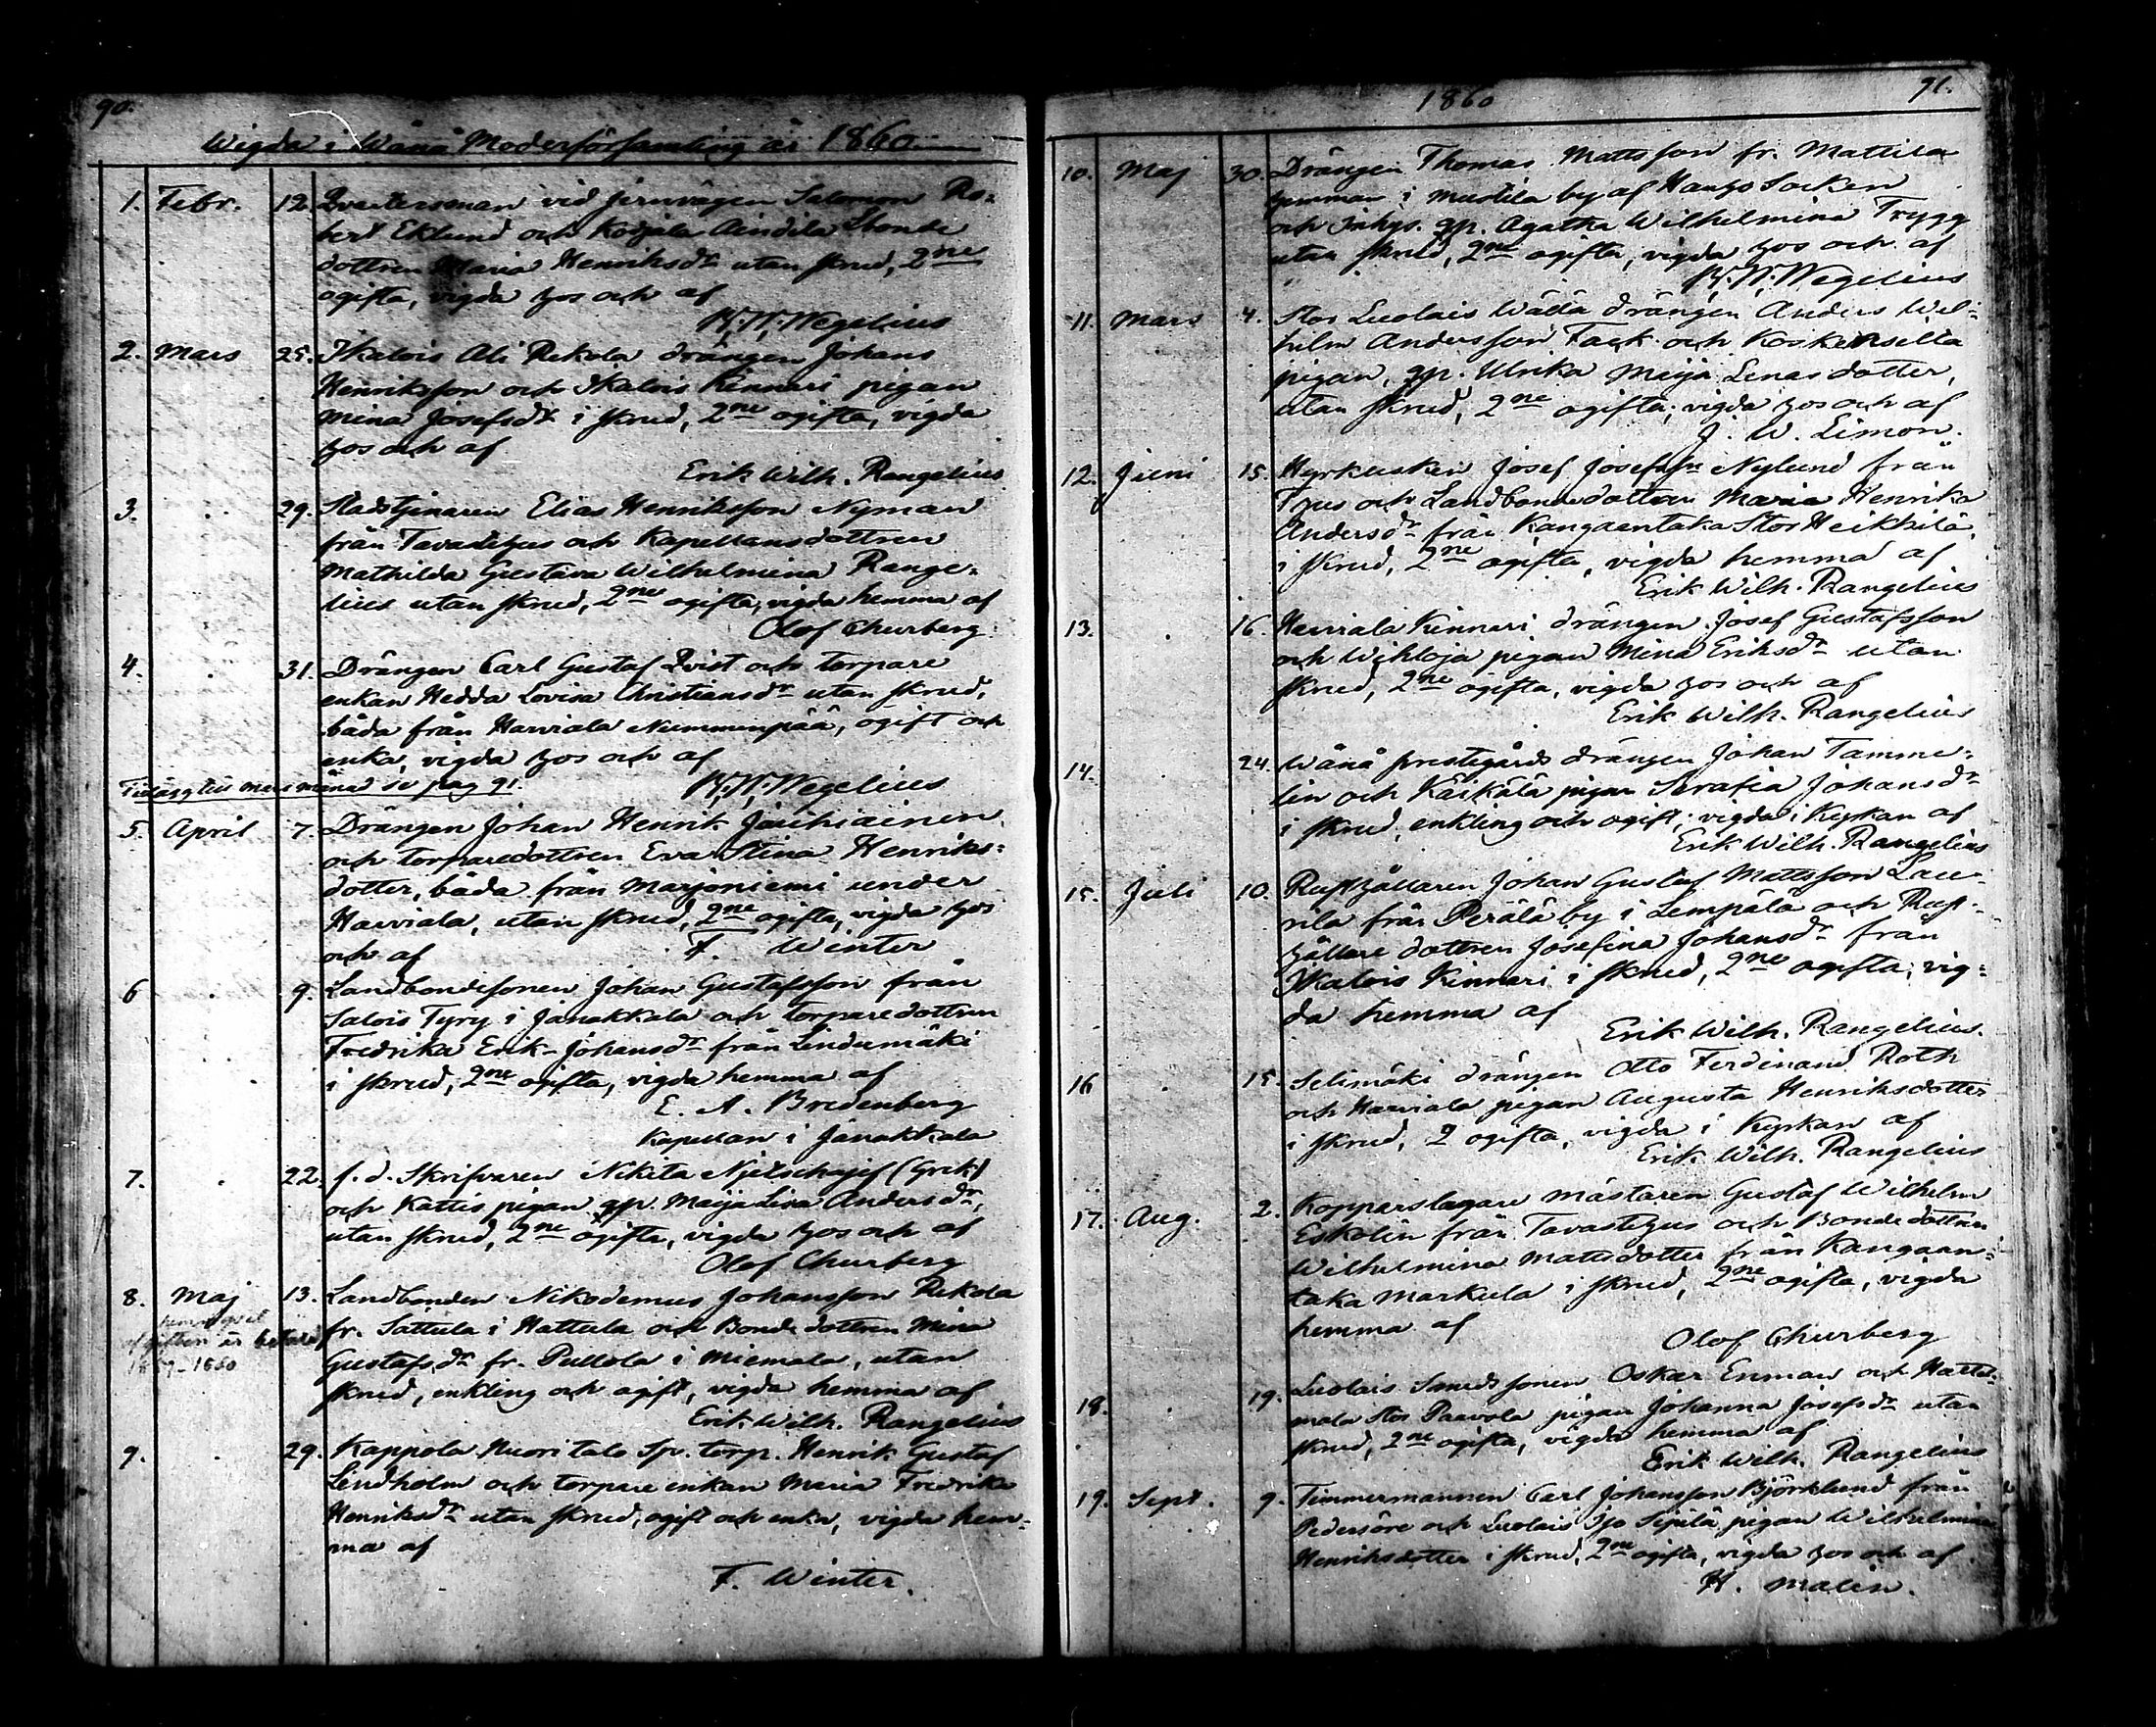 90.
Wigda i Wånå Moderförsamling år 1860.
1. Febr. 12. Qvartersman vid jernvägen Salomon Ro-
bert Eklund och Korjala Aindila Bonde
dottren Maria Henriksdr utan skrud, 2ne
ogifta, vigda hos och af
K. W. Wegelius
2. Mars 25. Ikalois Ali Rekola drängen Johans
Henriksson och Ikalois Kinnari pigan
Mina Josefsdr i skrud, 2ne ogifta, vigda
hos och af
Erik Wilh. Rangelius
3. . . 29. Stadstjenaren Elias Henriksson Nyman
från Tavastehus och Kapellansdottren
Mathilda Gustava Wilhelmina Range-
lius utan skrud, 2ne ogifta, vigda hemma af
Olof Churberg
4. . 31. Drängen Carl Gustaf Qvist och torpare
enkan Hedda Lovisa Christiansdr utan skrud,
båda från Harviala Nummenpää, ogift och
enka, vigda hos och af
Tillägg till mars månad se pag 91. K. W. Wegelius
5. April 7. Drängen Johan Henrik Jäихiäinen
och torparedottren Eva Stina Henriks-
dotter, båda från Marjoniemi under
Harviala, utan skrud, 2ne ogifta, vigda hos
och af F. Winter
6 . 9. Landbondesonen Johan Gustafsson från
Salois Tyry i Janakkala och torparedottren
Fredrika Erik-Johansdr från Lindumäki
i skrud, 2ne ogifta, vigda hemma af
E. A. Bredenberg
Kapellan i Janakkala
7. . 22. f. d. Skrifvaren Nikita Njetschajef (Grek)
och Kattis pigan gp. Maija Lisa Andersdr,
utan skrud, 2ne ogifta, vigda hos och af
Olof Churberg
8. Maj 13. Landbonden Nikodemus Johansson Rekola
fr. Sattula i Hattula och Bonde dottren Mina
afgiften är betald
1859-1860
Gustafsdr fr. Pullola i Miemala, utan
skrud, enkling och ogift, vigda hemma af
Erik Wilh. Rangelius
9. . 29. Kappola Nuoritalo Sp. torp. Henrik Gustaf
Lindholm och torpare enkan Maria Fredrika
Henriksdr utan skrud, ogift och enka, vigda hem-
ma af
F. Winter.
1860 91.
10. Maj 30. Drängen Thomas Mattsson fr. Mattila
hemman i Mustila by af Hauho Socken
och Inhys. gp. Agatha Wilhelmina Trygg
utan skrud, 2ne ogifta, vigda hos och af
K. W. Wegelius
11. Mars 4. Stor Luolais Wällä drängen Anders Wil-
helm Andersson Fack och Koskensilla
pigan, gp. Ulrika Meija Lenasdotter,
utan skrud, 2ne ogifta, vigda hos och af
J. W. Limon.
12. Juni 15. Hyrkusken Josef Josefssn Nylund från
T:hus och Landbondedottren Maria Henrika
Andersdr från Kangaantaka Stor Heikkilä
i skrud, 2ne ogifta, vigda hemma af
Erik Wilh. Rangelius
13. . 16. Harviala Kinnari drängen Josef Gustafsson
och Wihloja pigan Mina Eriksdr utan
skrud, 2ne ogifta, vigda hos och af
Erik Wilh. Rangelius
14. . 24. Wånå prestegårds drängen Johan Tamme-
lin och Käikälä pigan Serafia Johansdr
i skrud, enkling och ogift, vigda i Kyrkan af
Erik Wilh. Rangelius
15. Juli 10. Rusthållaren Johan Gustaf Mattsson Lau-
rila från Perälä by i Lempälä och Rust-
hållare dottren Josefina Johansdr från
Ikalois Kinnari i skrud, 2ne ogifta, vig-
da hemma af
Erik Wilh. Rangelius.
16 . 15. Selimäki drängen Otto Ferdinand Roth
och Harviala pigan Augusta Henriksdotter
i skrud, 2 ogifta, vigda i Kyrkan af
Erik Wilh. Rangelius
17. Aug. 2. Kopparslagare mästaren Gustaf Wilhelm
Eskolin från Tavastehus och Bonde dottren
Wilhelmina Mattsdotter från Kangaan-
taka Markula i skrud, 2ne ogifta, vigda
hemma af
Olof Churberg
18. . 19. Luolais Smedssonen Oskar Enman och Hattel-
mala Stor Paavola pigan Johanna Josefsdr utan
skrud, 2ne ogifta, vigda hemma af
Erik Wilh. Rangelius
19. Sept. 9. Timmermannen Carl Johansson Björklund från
Pedersöre och Luolais Iso Sipilä pigan Wilhelmina
Henriksdotter i skrud, 2ne ogifta, vigda hos och af
H. Malin.